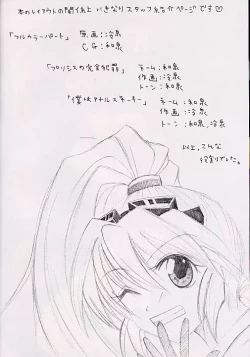 本のレイアウトの関係上いきなりスタッフ紹介ページです♡
「フルカラーパート」 原画：冷泉
CG：和泉
「プリシスの完全犯罪」 ネーム：和泉
作画：冷泉
トーン：和泉
「僕はアナルスキーキー」 ネーム：和泉
作画：冷泉
トーン：和泉、冷泉
以上、こんな
役割りでした。